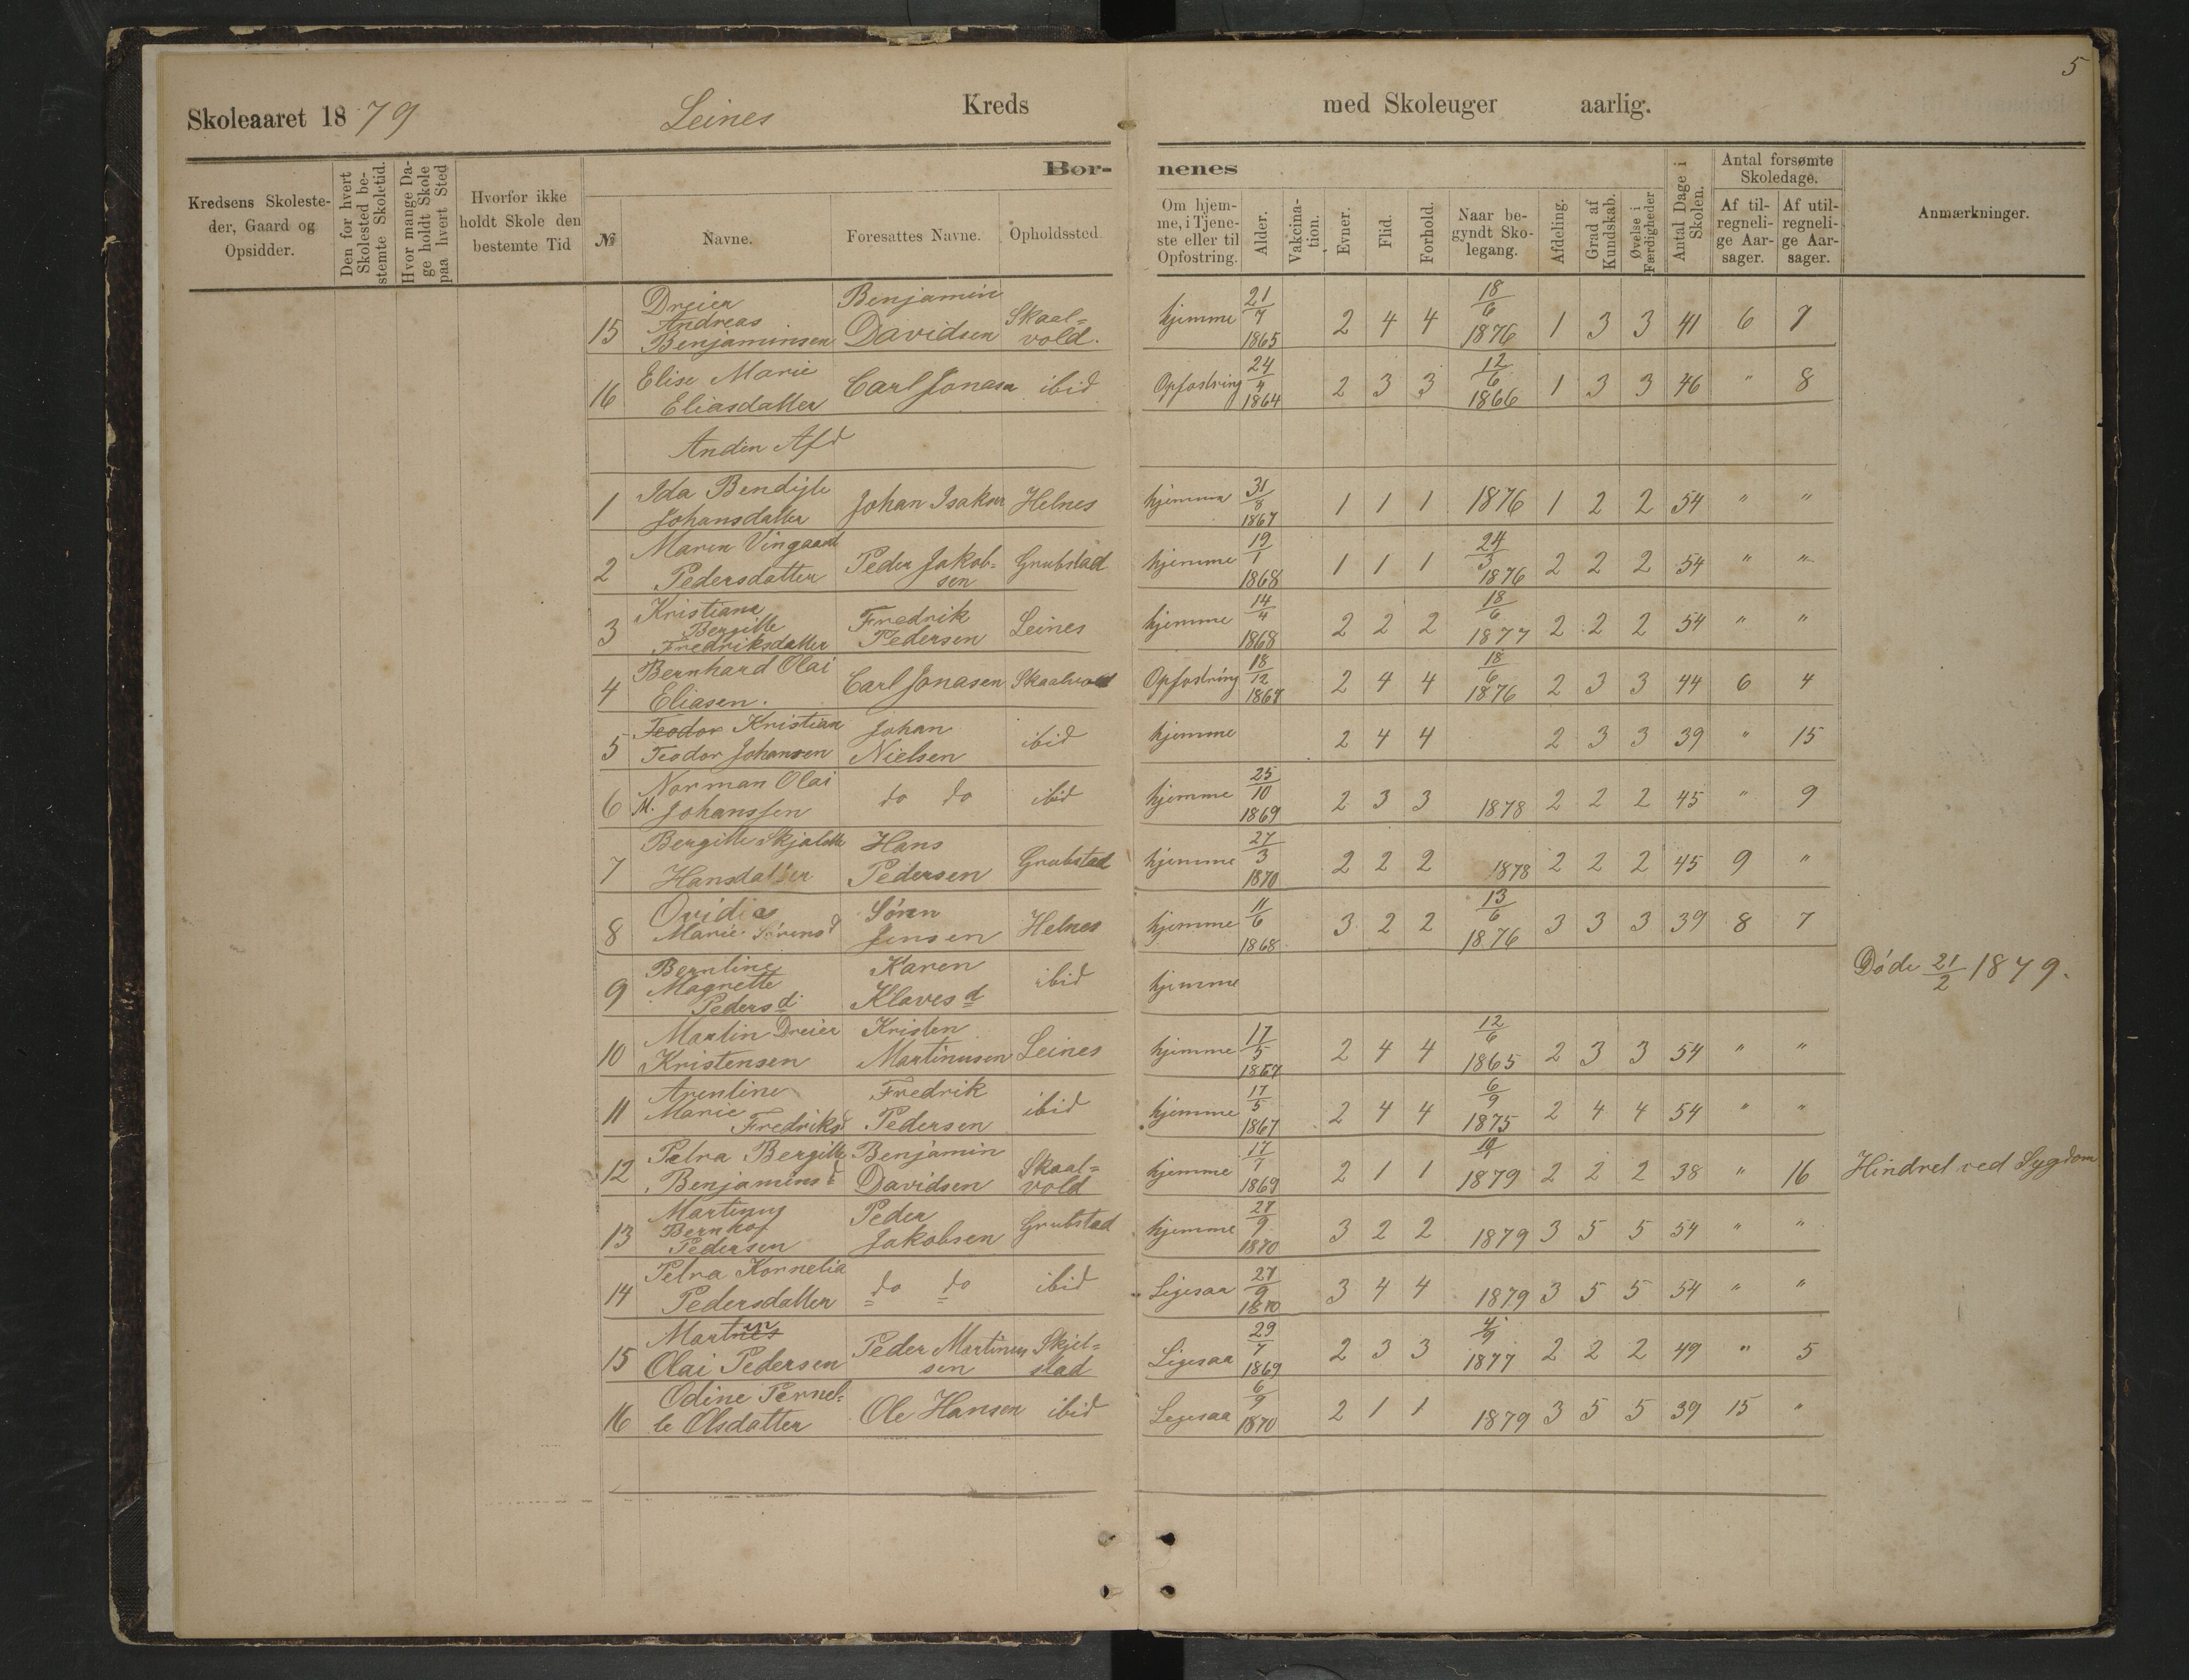 5
Skoleaaret 1879 Leines Kreds med Skoleuger aarlig.
Kredsens Skolesteder, Gaard og Opsidder.
Den for hvert Skolested bestemte Skoletid.
Hvor mange Dage holdt Skole paa hvert Sted
Hvorfor ikke holdt Skole den bestemte Tid
Børnenes
№ Navne. Foresattes Navne. Opholdssted. Om hjemme, i Tjeneste eller til Opfostring. Alder. Vakcination. Evner. Flid. Forhold. Naar begyndt Skolegang. Afdeling. Grad af Kundskab. Øvelse i Færdigheder Antal Dage i Skolen. Antal forsømte Skoledage. Af tilregnelige Aarsager. Af utilregnelige Aarsager. Anmærkninger.
15 Dreier Andreas Benjaminsen Benjamin Davidsen Skaal=vold. hjemme 21/7 1865 2 4 4 18/6 1876 1 3 3 41 6 7
16 Elise Marie Eliasdatter Carl Jonasen ibid Opfostring 24/4 1864 2 3 3 12/6 1866 1 3 3 46 " 8
Anden Afd
1 Ida Johansdatter Johan Isaksen Helnes hjemme 31/8 1867 1 1 1 1876 1 2 2 54 " "
2 Maren Vingaard Pedersdatter Peder Jakob=sen Grubstad hjemme 19/1 1868 1 1 1 24/3 1876 2 2 2 54 " "
3 Kristiana Bergitte Fredriksdatter Fredrik Pedersen Leines hjemme 14/4 1868 2 2 2 18/6 1877 2 2 2 54 " "
4 Bernhard Olai Eliasen. Carl Jonasen Skaalvold Opfostring 18/12 1867 2 4 4 18/6 1876 2 3 3 44 6 4
5 Teodor Kristian Teodor Johansen Johan Nielsen ibid hjemme 2 4 4 2 3 3 39 " 15
6 Norman Olai M. Johanssen do do ibid hjemme 25/10 1869 2 3 3 1878 2 2 2 45 " 9
7 Bergitte Hansdatter Hans Pedersen Grubstad hjemme 27/3 1870 2 2 2 1878 2 2 2 45 9 "
8 Ovidia Marie Sørensd Søren Jensen Helnes hjemme 11/6 1868 3 2 2 13/6 1876 3 3 3 39 8 7
9 Berntine Magnette Pedersd Karen Klavesd ibid hjemme Døde 21/2 1879.
10 Martin Dreier Kristensen Kristen Martinusen Leines hjemme 17/5 1867 2 4 4 12/6 1865 2 3 3 54 " "
11 Arentine Marie Fredriksd Fredrik Pedersen ibid hjemme 17/5 1867 2 4 4 6/9 1875 2 4 4 54 " "
12 Petra Bergitte Benjaminsd Benjamin Davidsen Skaal=vold hjemme 17/7 1869 2 1 1 1879 2 2 2 38 " 16 Hindret ved Sygdom
13 Martinus Bernhof Pedersen Peder Jakobsen Grubstad hjemme 27/9 1870 3 2 2 1879 3 5 5 54 " "
14 Petra Kornelia Pedersdatter do do ibid Ligesaa 27/9 1870 3 4 4 1879 3 5 5 54 " "
15 Olai Pedersen Peder Martinussen Skjel=stad Ligesaa 29/7 1869 2 3 3 1877 2 2 2 49 " 5
16 Odine Pernel=le Olsdatter Ole Hansen ibid Ligesaa 6/9 1870 2 1 1 1879 3 5 5 39 15 "